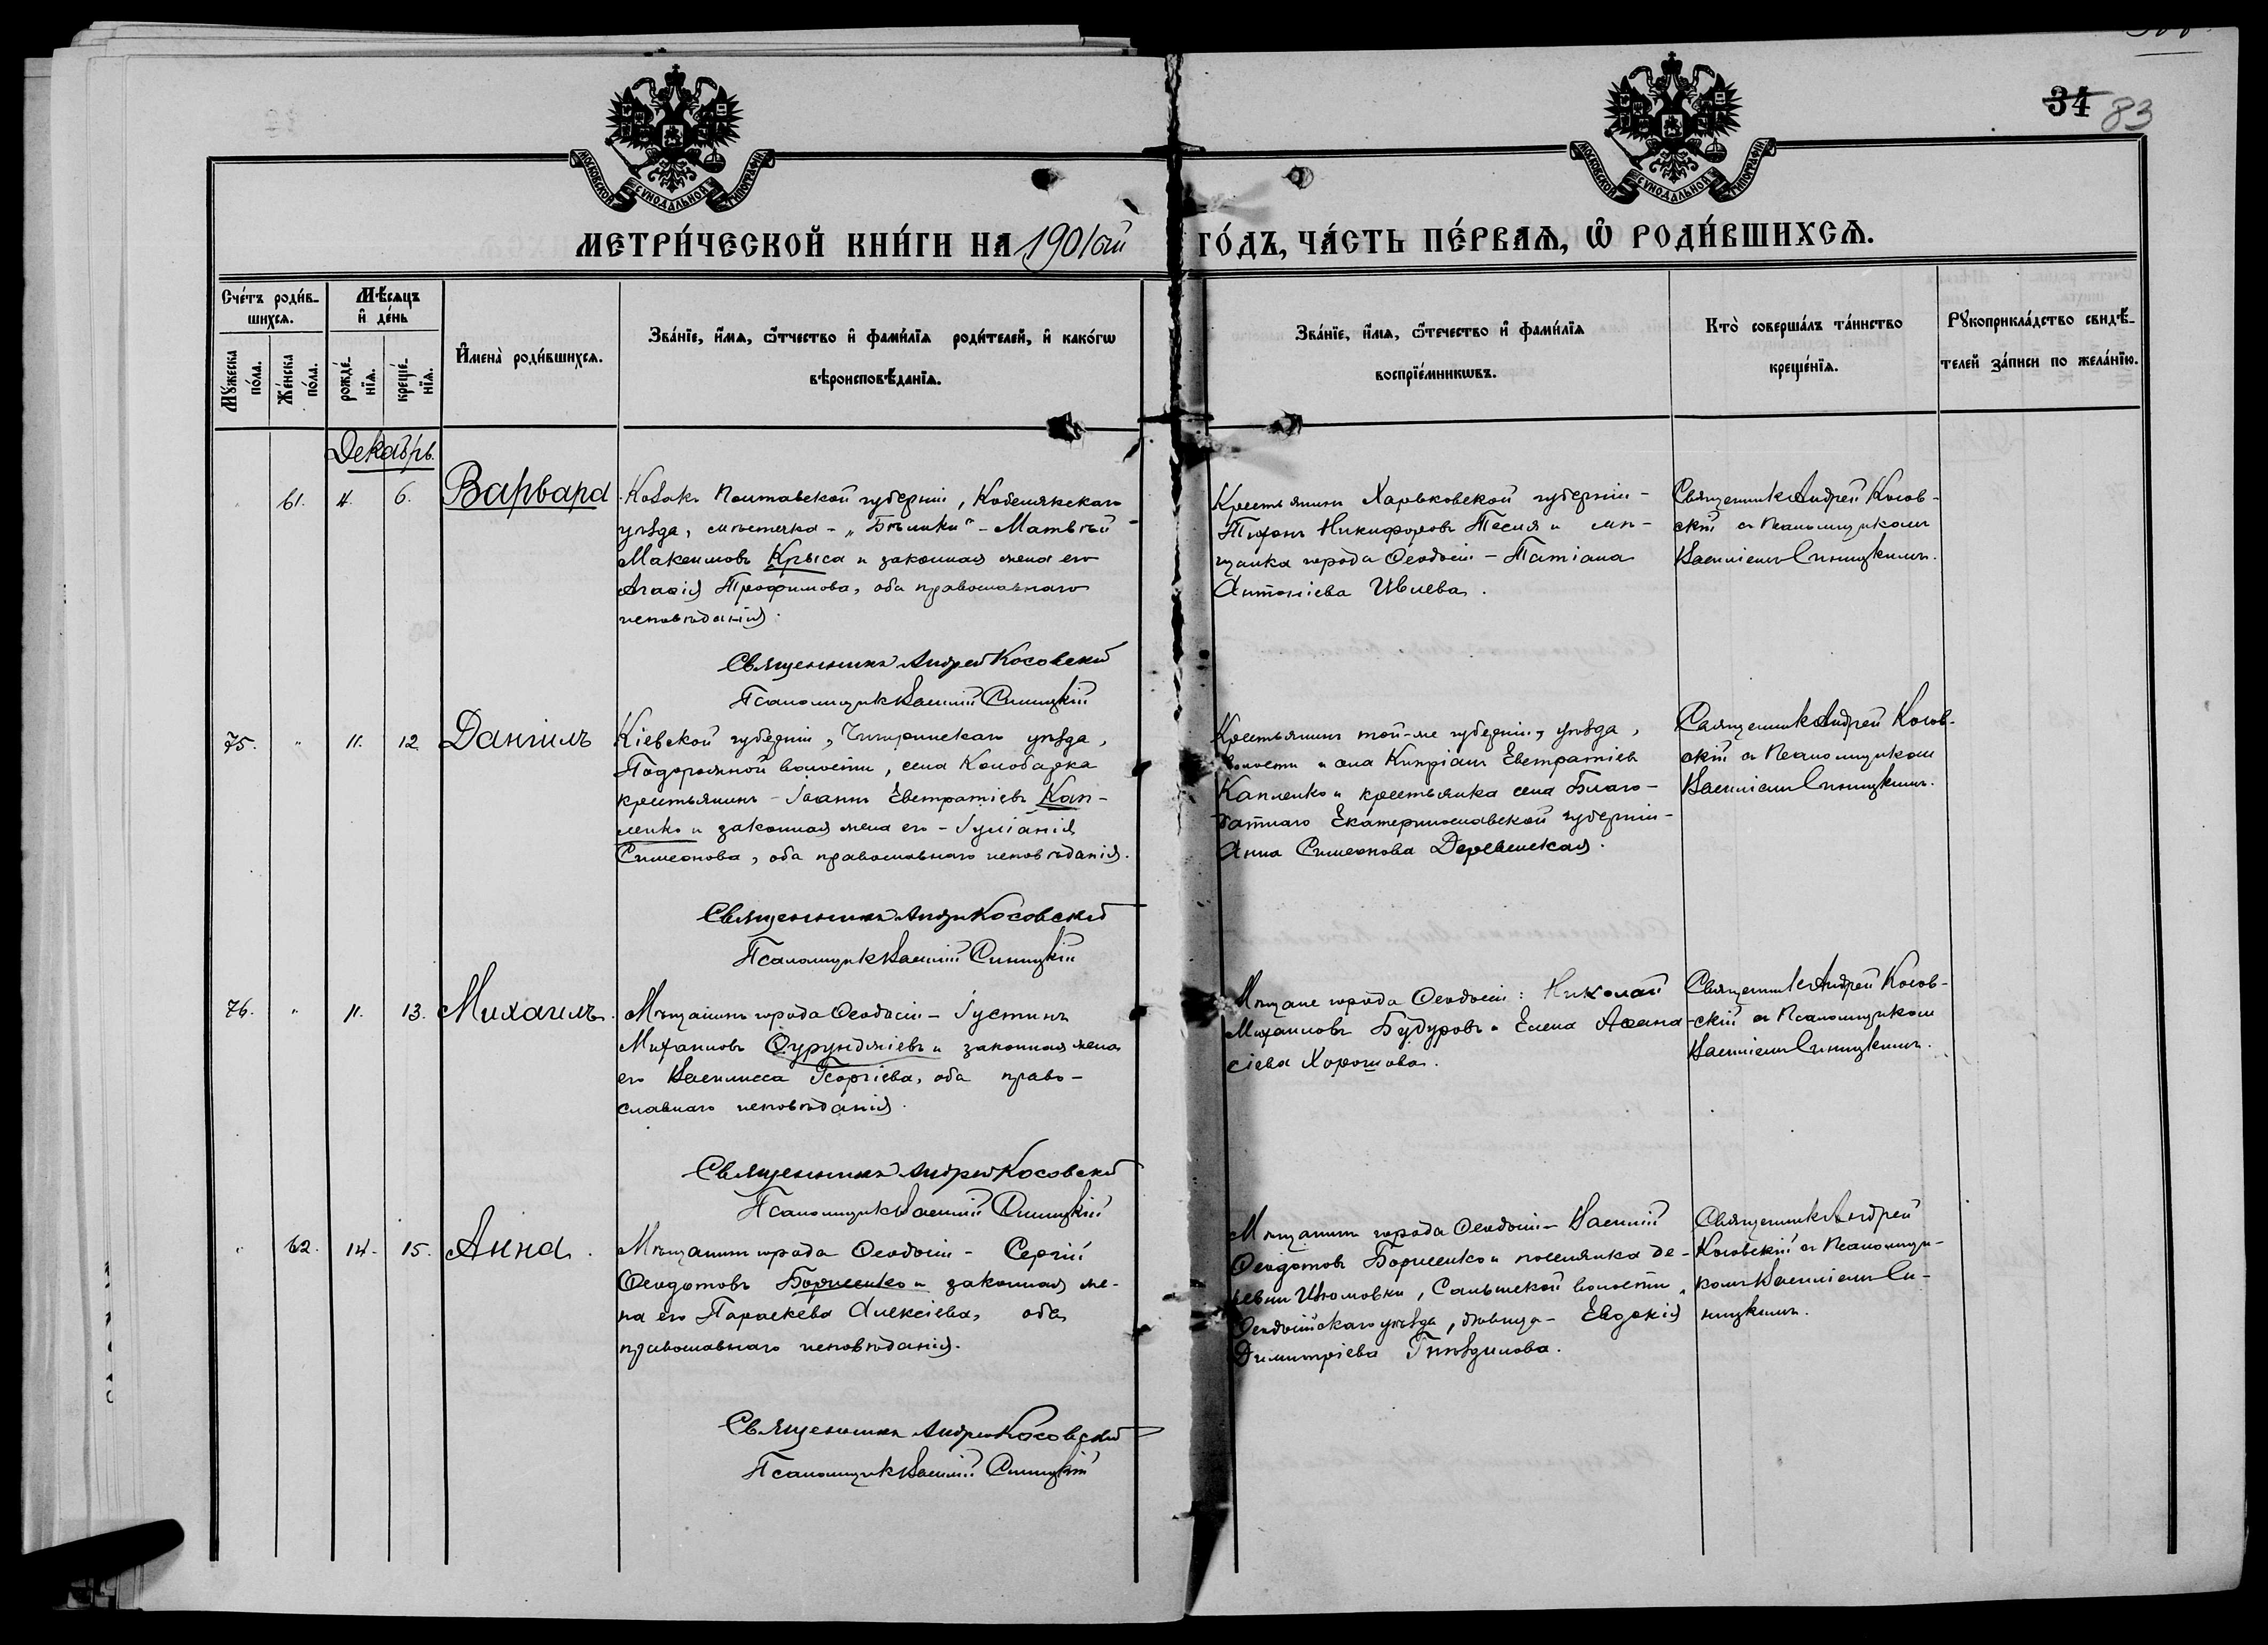 34 83
МОСКОВСКОЙ СУНОДАЛЬНОЙ ТИПОГРАФІИ
МОСКОВСКОЙ СУНОДАЛЬНОЙ ТИПОГРАФІИ
МЕТРИ́ЧЕСКОЙ КНИ́ГИ НА 1901ый ГО́ДЪ, ЧА́СТЬ ПЕ́РВАѦ, Ѡ҆ РОДИ́ВШИХСѦ.
Сче́тъ роди́в-
шихсѧ.
Мꙋ́жеска по́ла.
Же́нска по́ла.
Мѣ́сѧцъ
и҆ де́нь
рожде́-
нїѧ.
креще́-
нїѧ.
И҆мена̀ роди́вшихсѧ.
Зва́нїе, и҆́мѧ, ѻ҆́тчество и҆ фами́лїѧ роди́телей, и҆ како́гѡ
вѣроисповѣ́данїѧ.
Зва́нїе, и҆́мѧ, ѻ҆те́чество и҆ фами́лїѧ
воспрїе́мникѡвъ.
Кто̀ соверша́лъ та́инство
креще́нїѧ.
Рꙋкоприкла́дство свидѣ́-
телей за́писи по жела́нїю.
Декабрь.
61. 4. 6. Варвара
Козакъ Полтавской губерніи, Кобелякскаго
уѣзда, мѣстечка - „Бѣлики“ - Матвѣй
Максимовъ Крыса и законная жена его
Агаѳія Трофимова, оба православнаго
исповѣданія.
Священникъ Андрей Косовскій
Псаломщикъ Василій Синицкій
Крестьянинъ Харьковской губерніи -
Тихонъ Никифоровъ Тесля и мѣ-
щанка города Ѳеодосіи - Татіана
Антоніева Ивлева.
Священникъ Андрей Косов-
скій съ Псаломщикомъ
Василіемъ Синицкимъ.
75. " 11. 12 Даніилъ
Кіевской губерніи, Чигиринскаго уѣзда,
Подорожной волости, села Колобарка
крестьянинъ - Іоаннъ Евстратіевъ Кап-
ленко и законная жена его - Іуліанія
Симеонова, оба православнаго исповѣданія.
Священникъ Андрей Косовскій
Псаломщикъ Василій Синицкій
Крестьянинъ той-же губерніи, уѣзда,
волости и села Кипріанъ Евстратіевъ
Капленко и крестьянка села Благо-
датнаго Екатеринославской губерніи -
Анна Симеонова Деревенская.
Священникъ Андрей Косов-
скій съ Псаломщикомъ
Василіемъ Синицкимъ.
76. " 11. 13. Михаилъ.
Мѣщанинъ города Ѳеодосіи - Іустинъ
Михаиловъ Фурунджіевъ и законная жена
его Василисса Георгіева, оба право-
славнаго исповѣданія.
Священникъ Андрей Косовскій
Псаломщикъ Василій Синицкій
Мѣщане города Ѳеодосіи: Николай
Михаиловъ Будуровъ и Елена Аѳана-
сіева Хорошова.
Священникъ Андрей Косов-
скій съ Псаломщикомъ
Василіемъ Синицкимъ.
" 62. 14. 15. Анна.
Мѣщанинъ города Ѳеодосіи - Сергій
Ѳеодотовъ Борисенко и законная же-
на его Параскева Алексіева, оба
православнаго исповѣданія.
Священникъ Андрей Косовскій
Псаломщикъ Василій Синицкій
Мѣщанинъ города Ѳеодосіи - Василій
Ѳеодотовъ Борисенко и поселянка де-
ревни Изюмовки, Салынской волости,
Ѳеодосійскаго уѣзда, дѣвица - Евдокія
Димитріева Гнѣздилова.
Священникъ Андрей
Косовскій съ Псаломщи-
комъ Василіемъ Си-
ницкимъ.